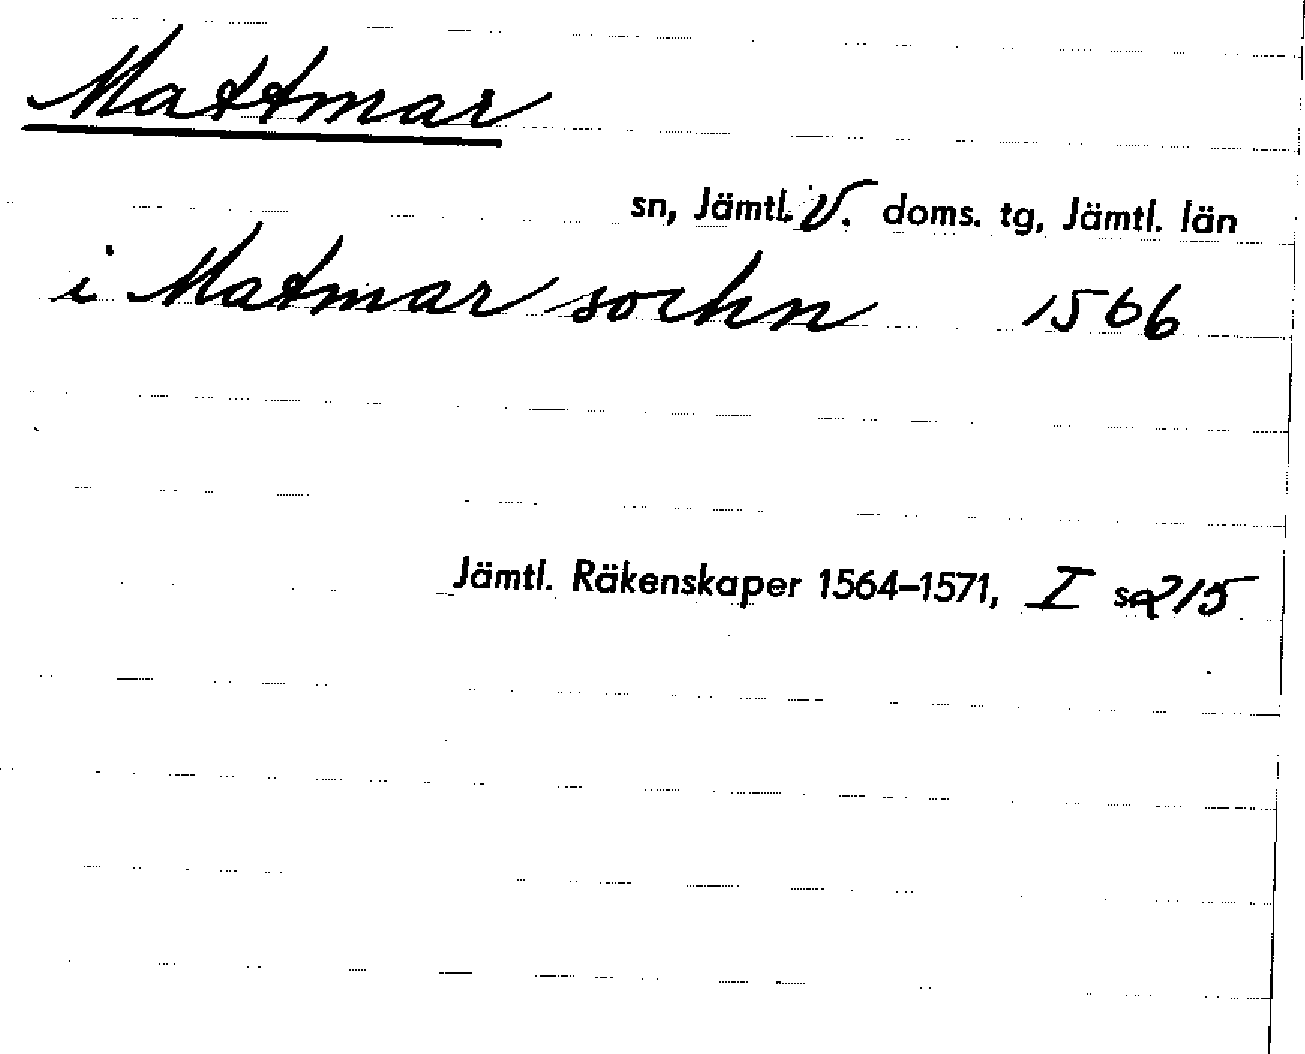 Mattmar
sn, Jämtl. V. doms. tg, Jämtl. län
i Matmar sockn 1566
Jämtl. Räkenskaper 1564–1571, I s. 215